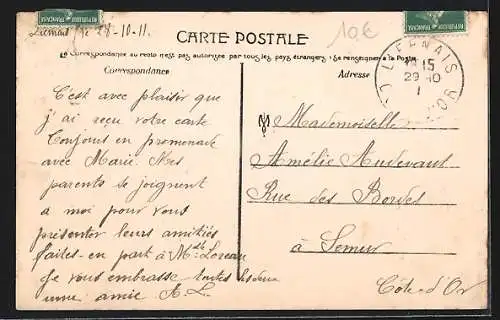 Liernais le 28-10-11.
10€
CARTE POSTALE
La Correspondance au recto n'est pas autorisée par tous les pays étrangers (Se renseigner à la Poste
Correspondance
Adresse
LIERNAIS
15
29-10
1
D'OR
C'est avec plaisir que
j'ai reçu votre carte
Toujours en promenade
avec Marie. Mes
parents se joignent
a moi pour vous
présenter leurs amitiés
faites-en part à Mme Loreau
Je vous embrasse toutes les deux
une amie A. L.
Mademoiselle
Amélie Audevaut
Rue des Bordes
à Semur
Côte-d'Or